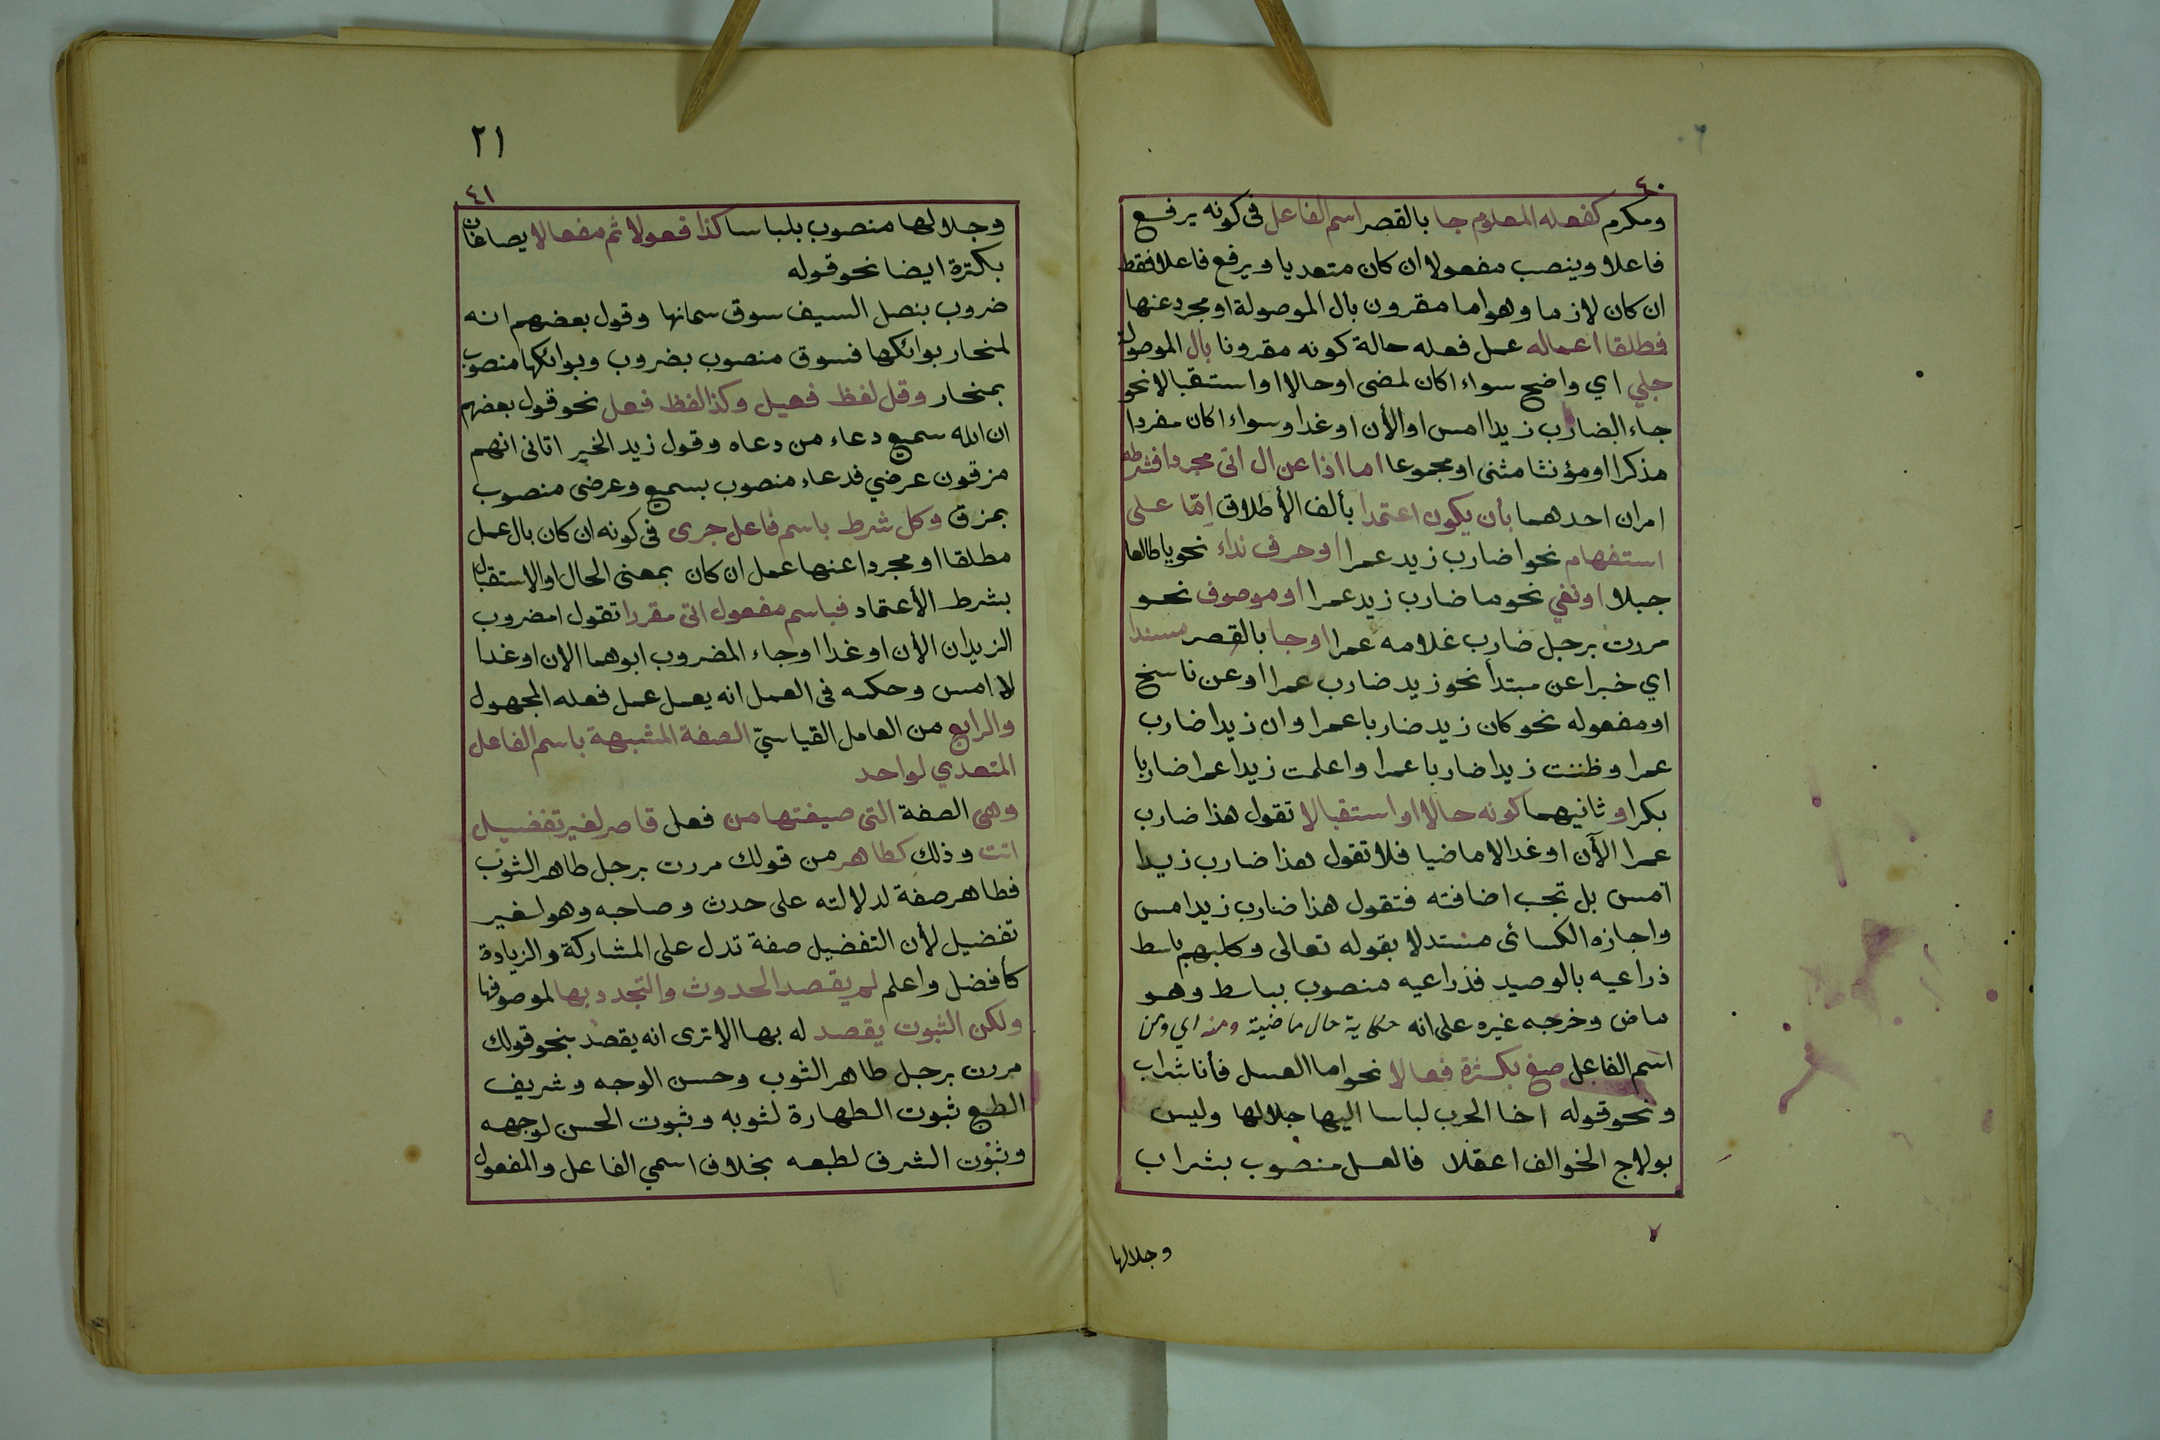 ٤٠
ومكرم كفعله المعلوم جا بالقصر اسم الفاعل فى كونه يرفع
فاعلا وينصب مفعولا ان كان متعديا ويرفع فاعلا فقط
ان كان لازما وهو اما مقرون بال الموصولة او مجرد عنها
فطلقا اعماله عمل فعله حالة كونه مقرونا بال الموصولة
جلي اي واضح سواء اكان لمضى او حالا او استقبالا نحو
جاء الضارب زيدا امس او الأن او غدا وسواء اكان مفردا
مذكرا او مؤنثا مثنى او مجموعا اما اذا عن ال اتى مجردا فشرطه
امران احدهما بأن يكون اعتمدا بألف الأطلاق اِمّا على
استفهام نحو اضارب زيد عمرا او حرف نداء نحو يا طالعا
جبلا او نفي نحو ما ضارب زيد عمرا او موصوف نحو
مررت برجل ضارب غلامه عمرا او جا بالقصر مسندا
اي خبرا عن مبتدأ نحو زيد ضارب عمرا او عن ناسخ
او مفعوله نحو كان زيد ضاربا عمرا وان زيدا ضارب
عمرا وظننت زيدا ضاربا عمرا واعلمت زيدا عمرا ضاربا
بكرا وثانيهما كونه حالا او استقبالا تقول هذا ضارب
عمرا الآن او غدا لا ماضيا فلا تقول هذا ضارب زيدا
امس بل تجب اضافته فتقول هذا ضارب زيد امس
واجازه الكسائى مستدلا بقوله تعالى وكلبهم باسط
ذراعيه بالوصيد فذراعيه منصوب بباسط وهو
ماض وخرجه غيره على انه حكاية حال ماضية ومنه اي ومن
اسم الفاعل صغ بكثرة فعالا نحو اما العسل فأنا شراب
ونحو قوله اخا الحرب لباسا اليها جلالها وليس
بولاج الخوالف اعقلا فالعسل منصوب بشراب
وجلالها
٢١
٤١
وجلالها منصوب بلباسا كذا فعولا ثم مفعالا يصاغان
بكثرة ايضا نحو قوله
ضروب بنصل السيف سوق سمانها وقول بعضهم انه
لمنحار بوائكها فسوق منصوب بضروب وبوائكها منصوب
بمنحار وقل لفظ فعيل وكذا لفظ فعل نحو قول بعضهم
ان الله سميع دعاء من دعاه وقول زيد الخير اتانى انهم
مزقون عرضي فدعاء منصوب بسميع وعرضى منصوب
بمزق وكل شرط باسم فاعل جرى فى كونه ان كان بال عمل
مطلقا او مجردا عنها عمل ان كان بمعنى الحال او الاستقبال
بشرط الأعتماد فباسم مفعول اتى مقررا تقول امضروب
الزيدان الأن او غدا او جاء المضروب ابوهما الان او غدا
لا امس وحكمه فى العمل انه يعمل عمل فعله المجهول
والرابع من العامل القياسيّ الصفة المشبهة باسم الفاعل
المتعدي لواحد
وهى الصفة التى صيغتها من فعل قاصر لغير تفضيل
اتت وذلك كطاهر من قولك مررت برجل طاهر الثوب
فطاهر صفة لدلالته على حدث وصاحبه وهو لغير
تفضيل لأن التفضيل صفة تدل على المشاركة والزيادة
كأفضل واعلم لم يقصد الحدوث والتجدد بها لموصوفها
ولكن الثبوت يقصد له بها الا ترى انه يقصد بنحو قولك
مررت برجل طاهر الثوب وحسن الوجه وشريف
الطبع ثبوت الطهارة لثوبه وثبوت الحسن لوجهه
وثبوت الشرف لطبعه بخلاف اسمي الفاعل والمفعول